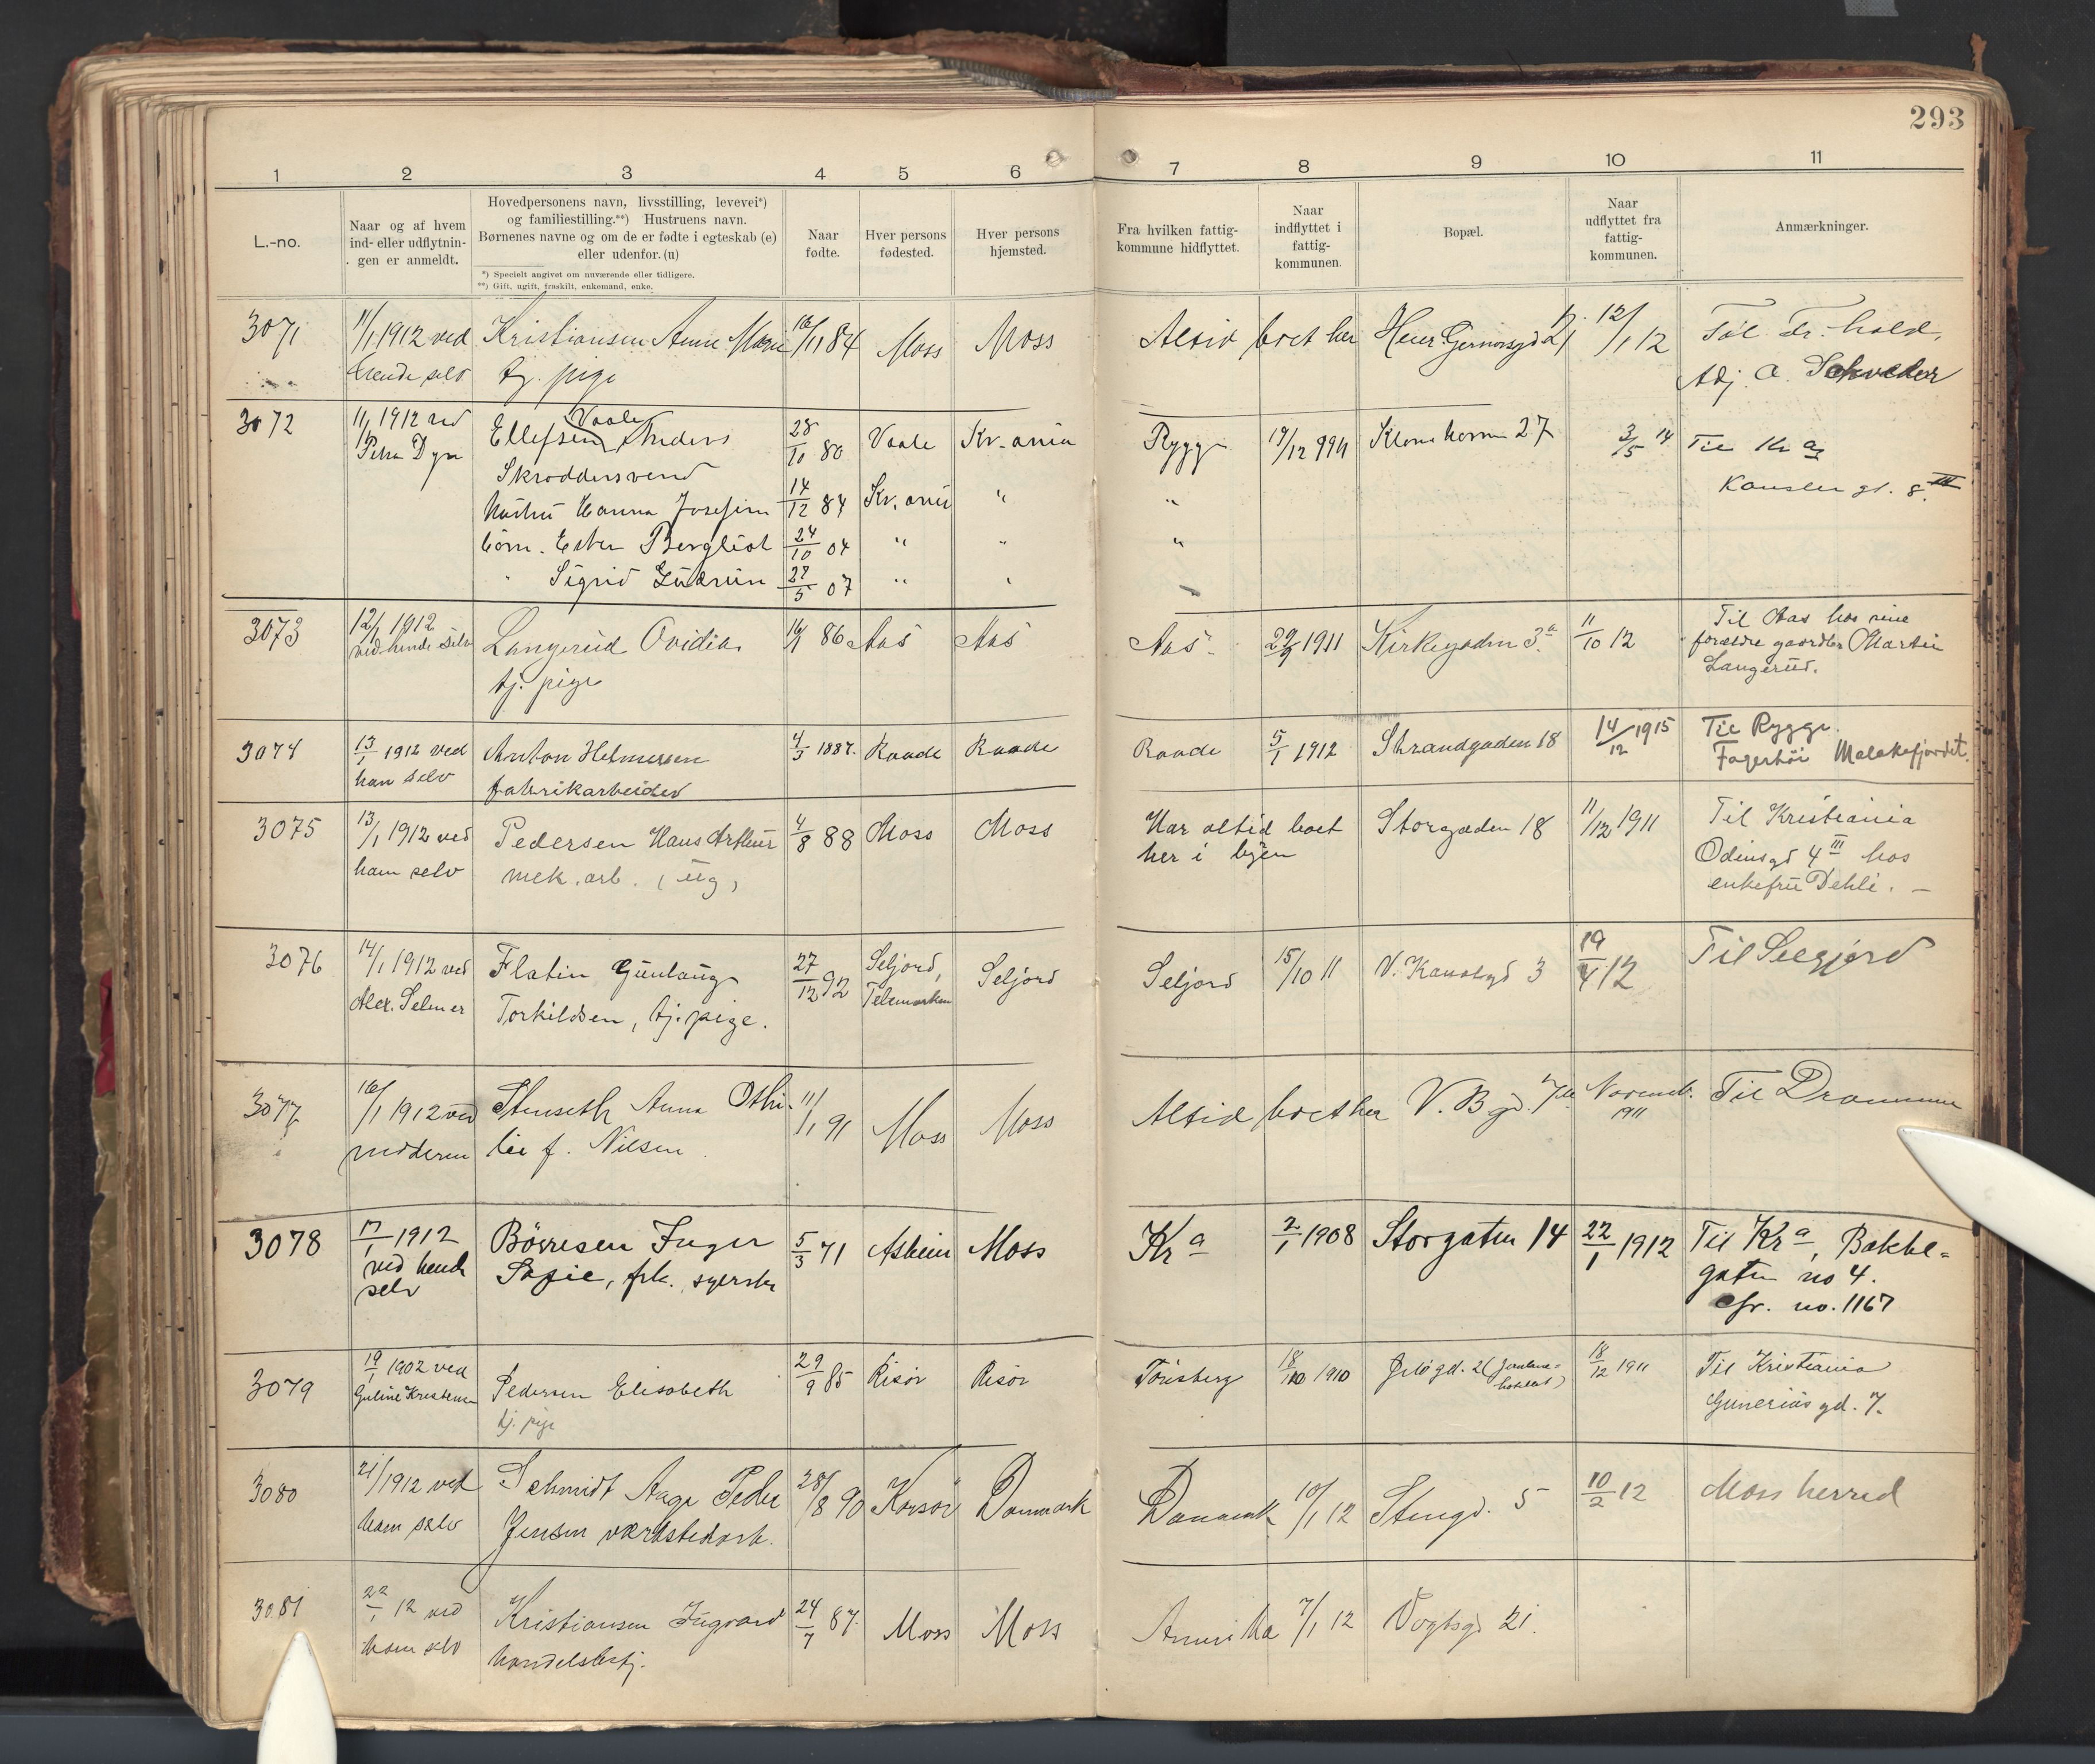 293
1 2 3 4 5 6 7 8 9 10 11
L.-no.
Naar og af hvem
ind- eller udflytnin-
gen er anmeldt.
Hovedpersonens navn, livsstilling, levevei*)
og familiestilling.**) Hustruens navn.
Børnenes navne og om de er fødte i egteskab (e)
eller udenfor. (u)
*) Specielt angivet om nuværende eller tidligere.
**) Gift, ugift, fraskilt, enkemand, enke.
Naar
fødte.
Hver persons
fødested.
Hver persons
hjemsted.
Fra hvilken fattig-
kommune hidflyttet.
Naar
indflyttet i
fattig-
kommunen.
Bopæl.
Naar
udflyttet fra
fattig-
kommunen.
Anmærkninger.
3071 11/1 1912 ved Kristiansen Anna Marie 16/11 84 Moss Moss Altid boet her 21 12/1 12 Til Fr.hald,
hende selv tj. pige Adj. A. Schrøder
3072 11/1 1912 ved Ellefsen Vaale Anders 28/10 80 Vaale Kr.ania Rygge 19/12 Klommestenen 27 3/5 14 Til Kr a
Petra Dyre Skræddersvend Kansler gt. 8 III
hustru Hanna Josefine 14/12 84 Kr.ania " "
børn. Ester Bergliot 24/10 04 " " "
" Sigrid Gudrun 28/5 07 " " "
3073 12/1 1912 Langerud Ovidia 86 Aas Aas Aas 29/9 1911 Kirkegaden 3a 11/10 12 Til Aas hos sine
ved hende selv tj. pige forældre gaardbr Martin
Langerud.
3074 13/1 1912 ved Anton Helmersen 4/3 1887. Raade Raade Raade 5/1 1912 Strandgaden 18 14/12 1915 Til Rygge.
han selv fabrikarbeider Fagerhøi Malakefjordet.
3075 13/1 1912 ved Pedersen Hans Arthur 4/8 88 Moss Moss Har altid boet Storgaden 18 11/12 1911 Til Kristiania
ham selv mek. arb. (ug) her i byen Odinsgd 4 III hos
enkefru Dehli. –
3076 14/1 1912 ved Flatin Gunlaug 27/12 92 Seljord, Seljord Seljord 15/10 11 V. Kanalgd 3 19/4 12 Til Selgjord
Alex. Selmer Torkildsen, tj. pige. Telemarken
3077 16/1 1912 ved Stenseth Anna Othi- 11/1 91 Moss Moss Altid boet her V. B gd. Novemb. Til Drammen
moderen lie f. Nilsen 1911
3078 17/1 1912 Børresen Inger 5/3 71 Askim Moss Kr a 2/1 1908 Storgaten 14 22/1 1912 Til Kr a, Bakke-
ved hende Sofie, frk. syerske gaten no 4.
selv cfr. no. 1167
3079 19/1 1902 ved Pedersen Elisabeth 29/9 85 Risør Risør Tønsberg 18/10 1910 gd. 2 (Jernbane- 18/12 1911 Til Kristiania
Guline Kristensen tj. pige hotellet) Gunerius gd. 7.
3080 21/1 1912 ved Schmidt Aage Peder 28/8 90 Korsør Danmark Danmark 10/1 12 Stengd. 5 10/2 12 Moss herred
ham selv Jensen værkstedarb.
3081 22/1 12 ved Kristiansen Ingvard 24/7 87. Moss Moss Amerika 7/1 12 Vogtsgd 21.
ham selv handelsbetj.